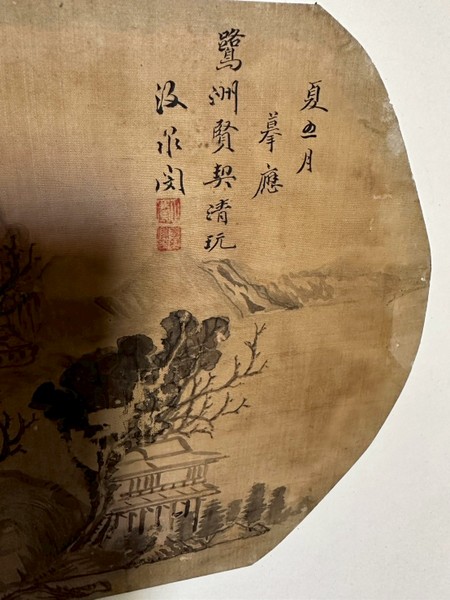 夏五月
摹應
鷺洲賢契清玩
汲泉閔